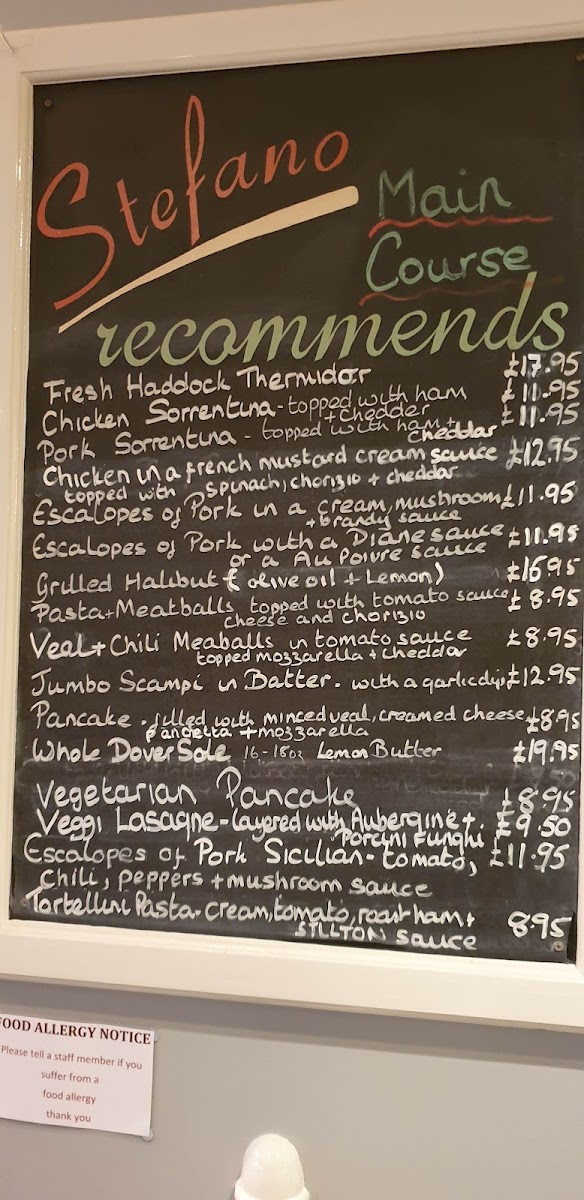 Stefano
Main
Course
recommends
Fresh Haddock Thermidor £17.95
Chicken Sorrentina - topped with ham £11.95
+ chedder
Pork Sorrentina - topped with ham + £11.95
cheddar
Chicken in a french mustard cream sauce £12.95
topped with spinach, chorizio + cheddar
Escalopes of Pork in a cream, mushroom £11.95
+ brandy sauce
Escalopes of Pork with a Diane sauce £11.95
or a Au Poivre sauce
Grilled Halibut ( olive oil + Lemon) £16.95
Pasta + Meatballs topped with tomato sauce £8.95
cheese and chorizio
Veal + Chili Meaballs in tomato sauce £8.95
topped mozzarella + cheddar
Jumbo Scampi in Batter. with a garlic dip £12.95
Pancake. filled with minced veal, creamed cheese £8.95
pancetta + mozzarella
Whole Dover Sole 16-18oz Lemon Butter £19.95
Vegetarian Pancake £8.95
Veggi Lasagne - layered with Aubergine + £9.50
Porcini Funghi
Escalopes of Pork Sicilian - tomato, £11.95
chili, peppers + mushroom sauce
Tortellini Pasta - cream, tomato, roast ham + 8.95
STILLTON sauce
FOOD ALLERGY NOTICE
Please tell a staff member if you
suffer from a
food allergy
thank you